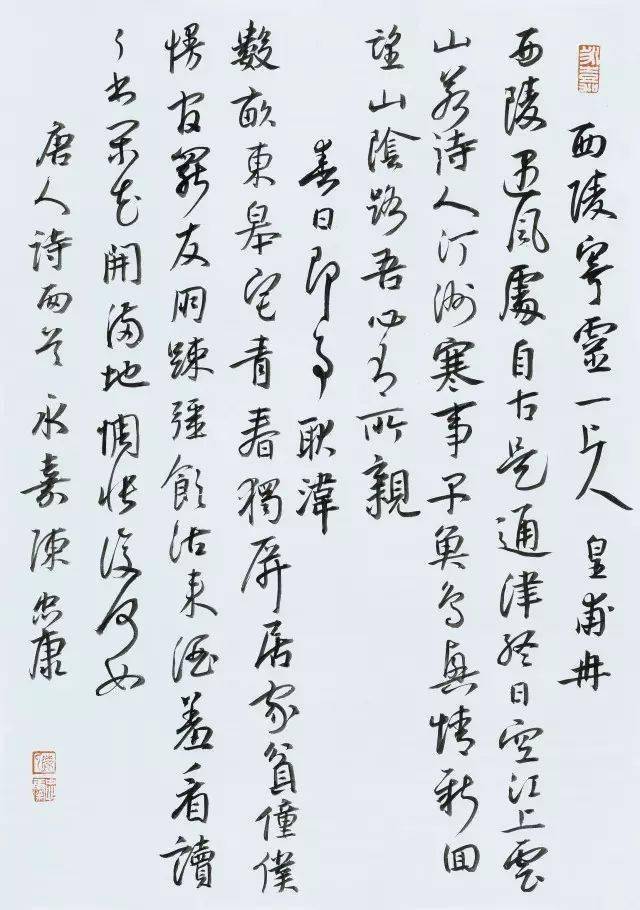 西陵寄靈一上人 皇甫冉
西陵遇風處自古是通津終日空江上雲
山若待人汀洲寒事早魚鳥興情新回
望山陰路吾心有所親
春日即事 耿湋
數畝東皋宅青春獨屏居家貧僮僕
慢官罷友朋疎強飲沽來酒羞看讀
了書閑花開滿地惆悵復何如
唐人詩兩首 永嘉陳忠康